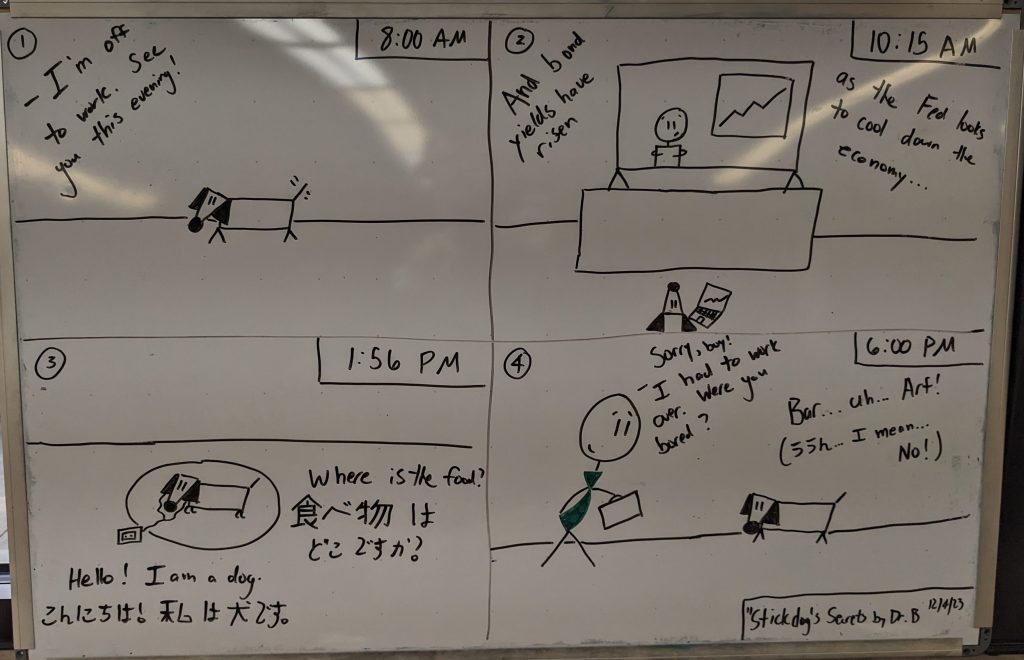 ①
8:00 AM
- I'm off
to work. See
you this evening!
②
10:15 AM
And bond
yields have
risen
as the Fed looks
to cool down the
economy...
③
1:56 PM
Where is the food?
食べ物 は
どこ ですか?
Hello! I am a dog.
こんにちは! 私 は 犬です。
④
6:00 PM
Sorry, boy!
- I had to work
over. Were you
bored?
Bar... uh... Arf!
(ううん... I mean...
No!)
"Stickdog's Secrets by Dr. B
12/4/23